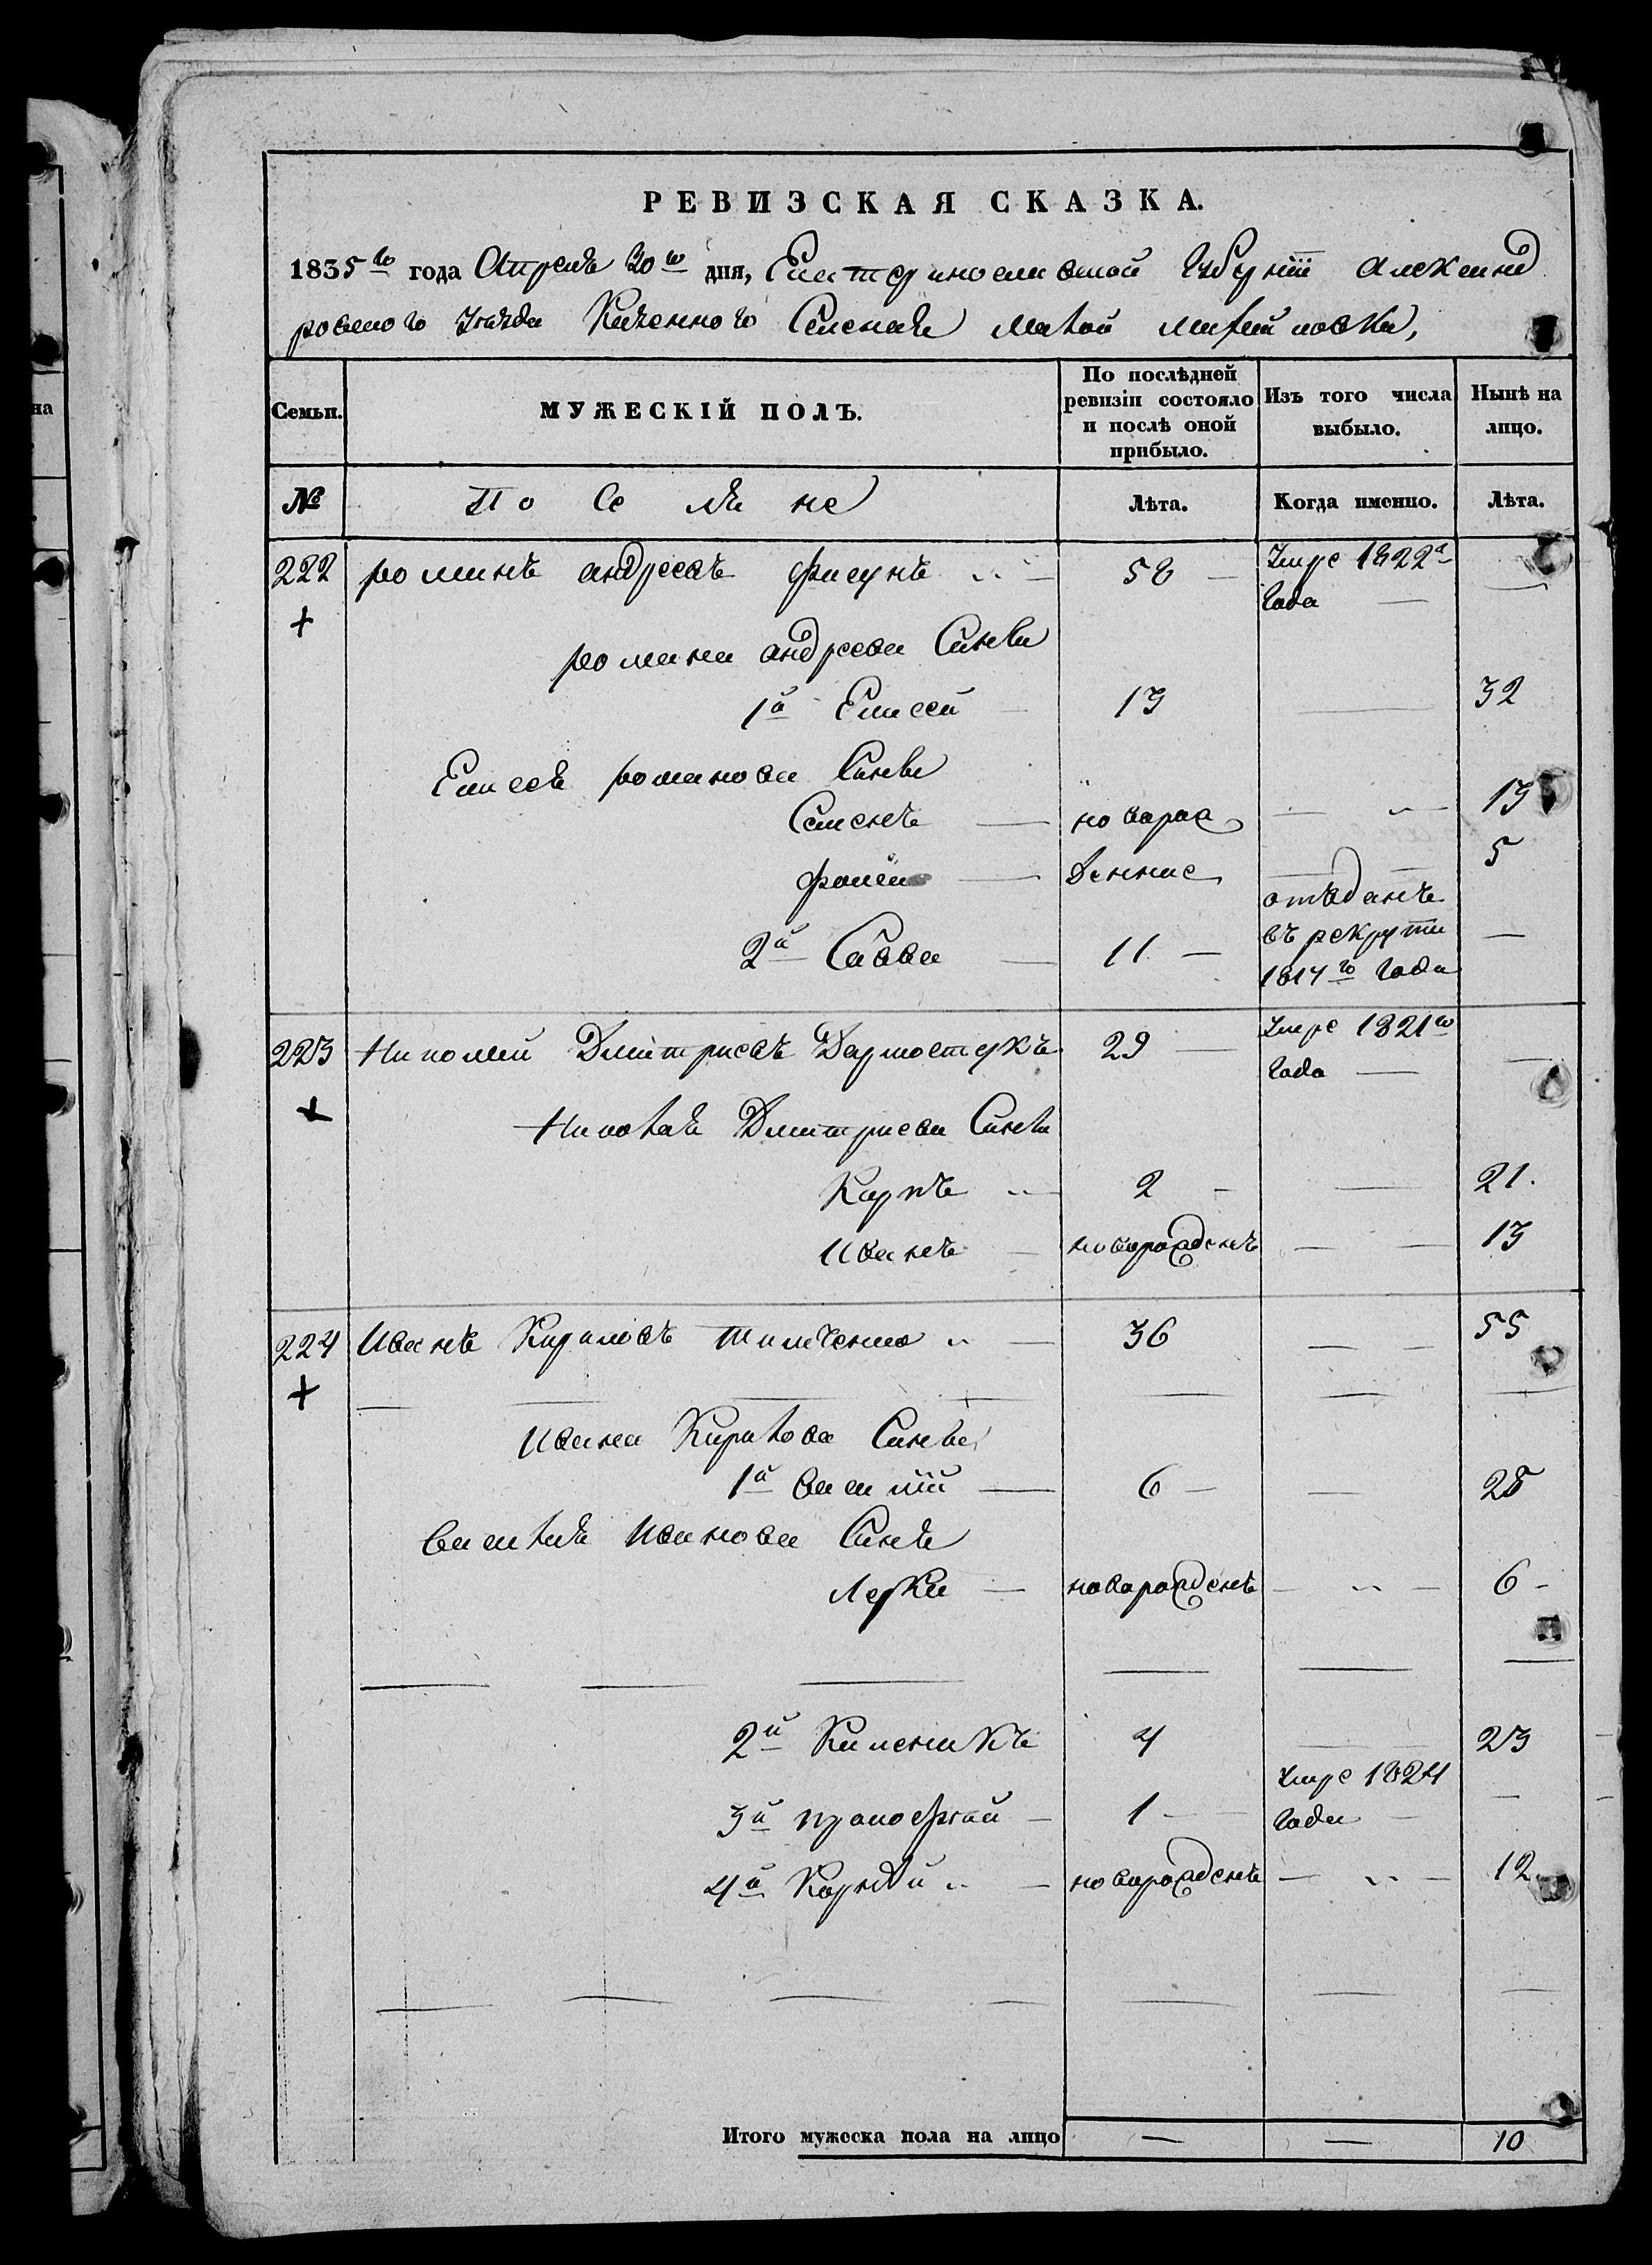 РЕВИЗСКАЯ СКАЗКА.
1835го года Апреля 30го дня, Екатеринославской Губернiи Александ
ровского Уезда Казенного Селения Малой михайловки,
Семьи.
МУЖЕСКIЙ ПОЛЪ.
По послѣдней ревизiи состояло и послѣ оной прибыло.
Изъ того числа выбыло.
Нынѣ на лицо.
№
Поселяне
Лѣта.
Когда именно.
Лѣта.
222 романъ андреевъ фисунъ 58 Умре 1822го года —
романа андреева Синвя
1й Елисей 13 — 32
Елисея романова Синвя
Семенъ новорож — 13
денние — 5
2й Савва 11 отъданъ въ рекруты 1817го года —
223 Николай Дмитриевъ 29 Умре 1821го года —
Николая Дмитриева Синвя
Карпъ 2 — 21.
Иванъ новорожденъ — 13
224 Иванъ Кириловъ тимченко 36 — 55
Ивана Кирилова Синвя
1й василiй 6 — 28
василия Иванова Синъ
новорожденъ — 6
2й 4 — 23
3й прокофiй 1 Умре 1824 года —
4й Корнѣй новорожденъ — 12
Итого мужеска пола на лицо — — 10
на